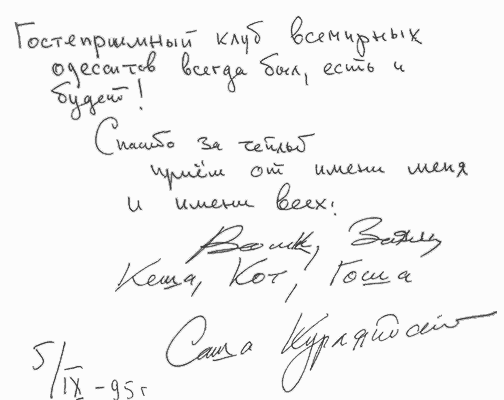 Гостеприимный клуб всемирных
одесситов всегда был, есть и
будет!
Спасибо за теплый
приём от имени меня
и имени всех:
Волк, Заяц,
Кеша, Кот, Гоша
Саша Курляндский
5/IX-95г